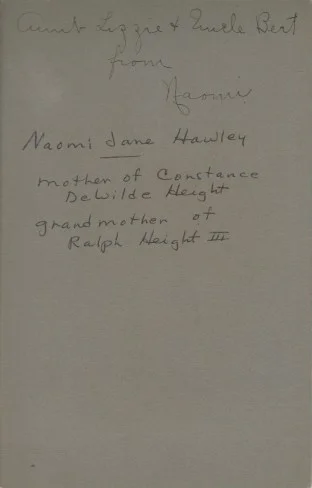 Aunt Lizzie & Uncle Bert
from
Naomi
Naomi Jane Hawley
mother of Constance
DeWilde Height
grandmother of
Ralph Height III